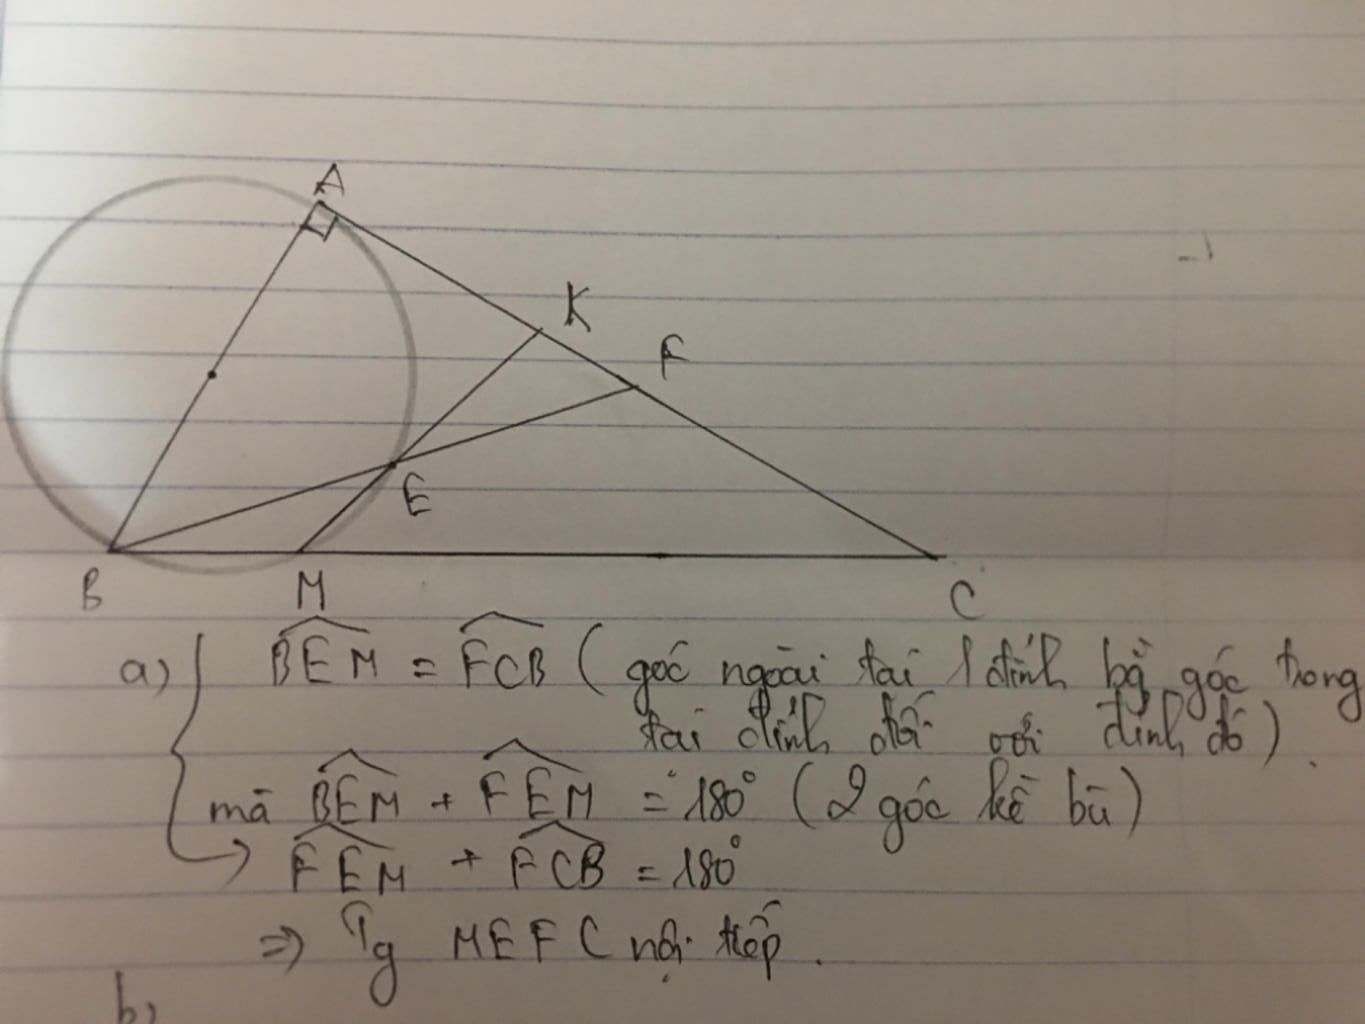 A
K
F
E
B
M
C
a) { BEM = FCB ( góc ngoài tại 1 đỉnh bằ góc trong
tại đỉnh đối với đỉnh đó ) .
mà BEM + FEM = 180° ( 2 góc kề bù )
→ FEM + FCB = 180°
=> Tg MEFC nội tiếp .
b)